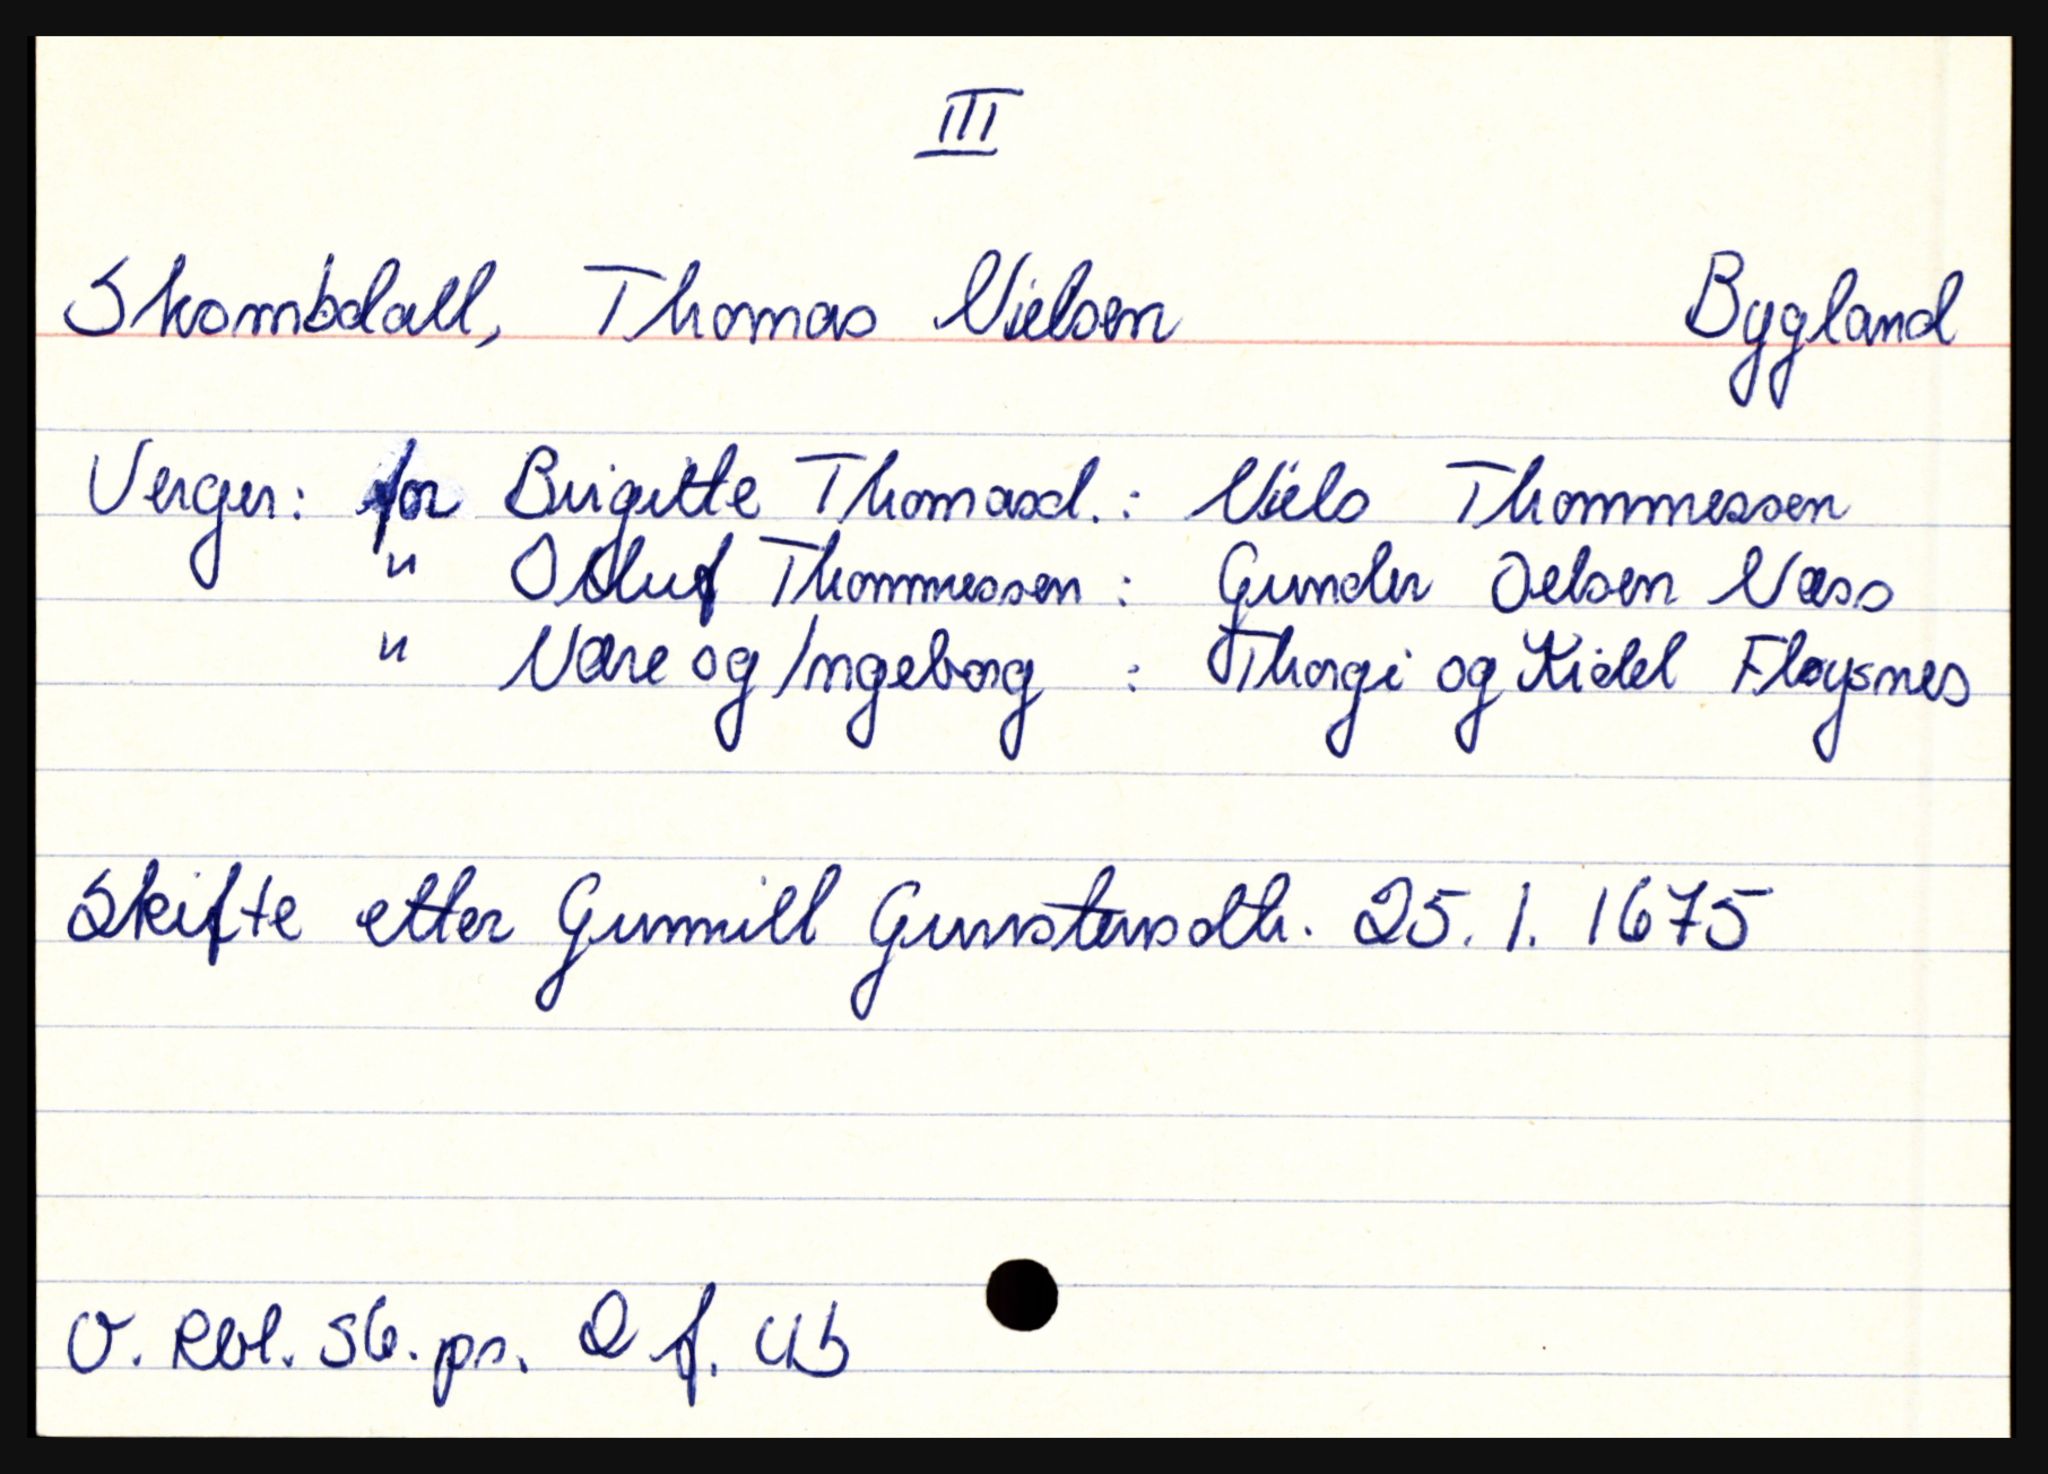 III
Skombdall, Thomas Nielsen Bygland
Verger: for Birgitte Thomasd.: Niels Thommessen
" Olluf Thommessen : Gunder Oelsen Næss
" Nære og Ingeborg : Thorgi og Kidel Fløysnes
Skifte etter Gunnill Gunstensdtr. 25.1.1675
O. Rbl. Sk. pr. 2 f. 4b